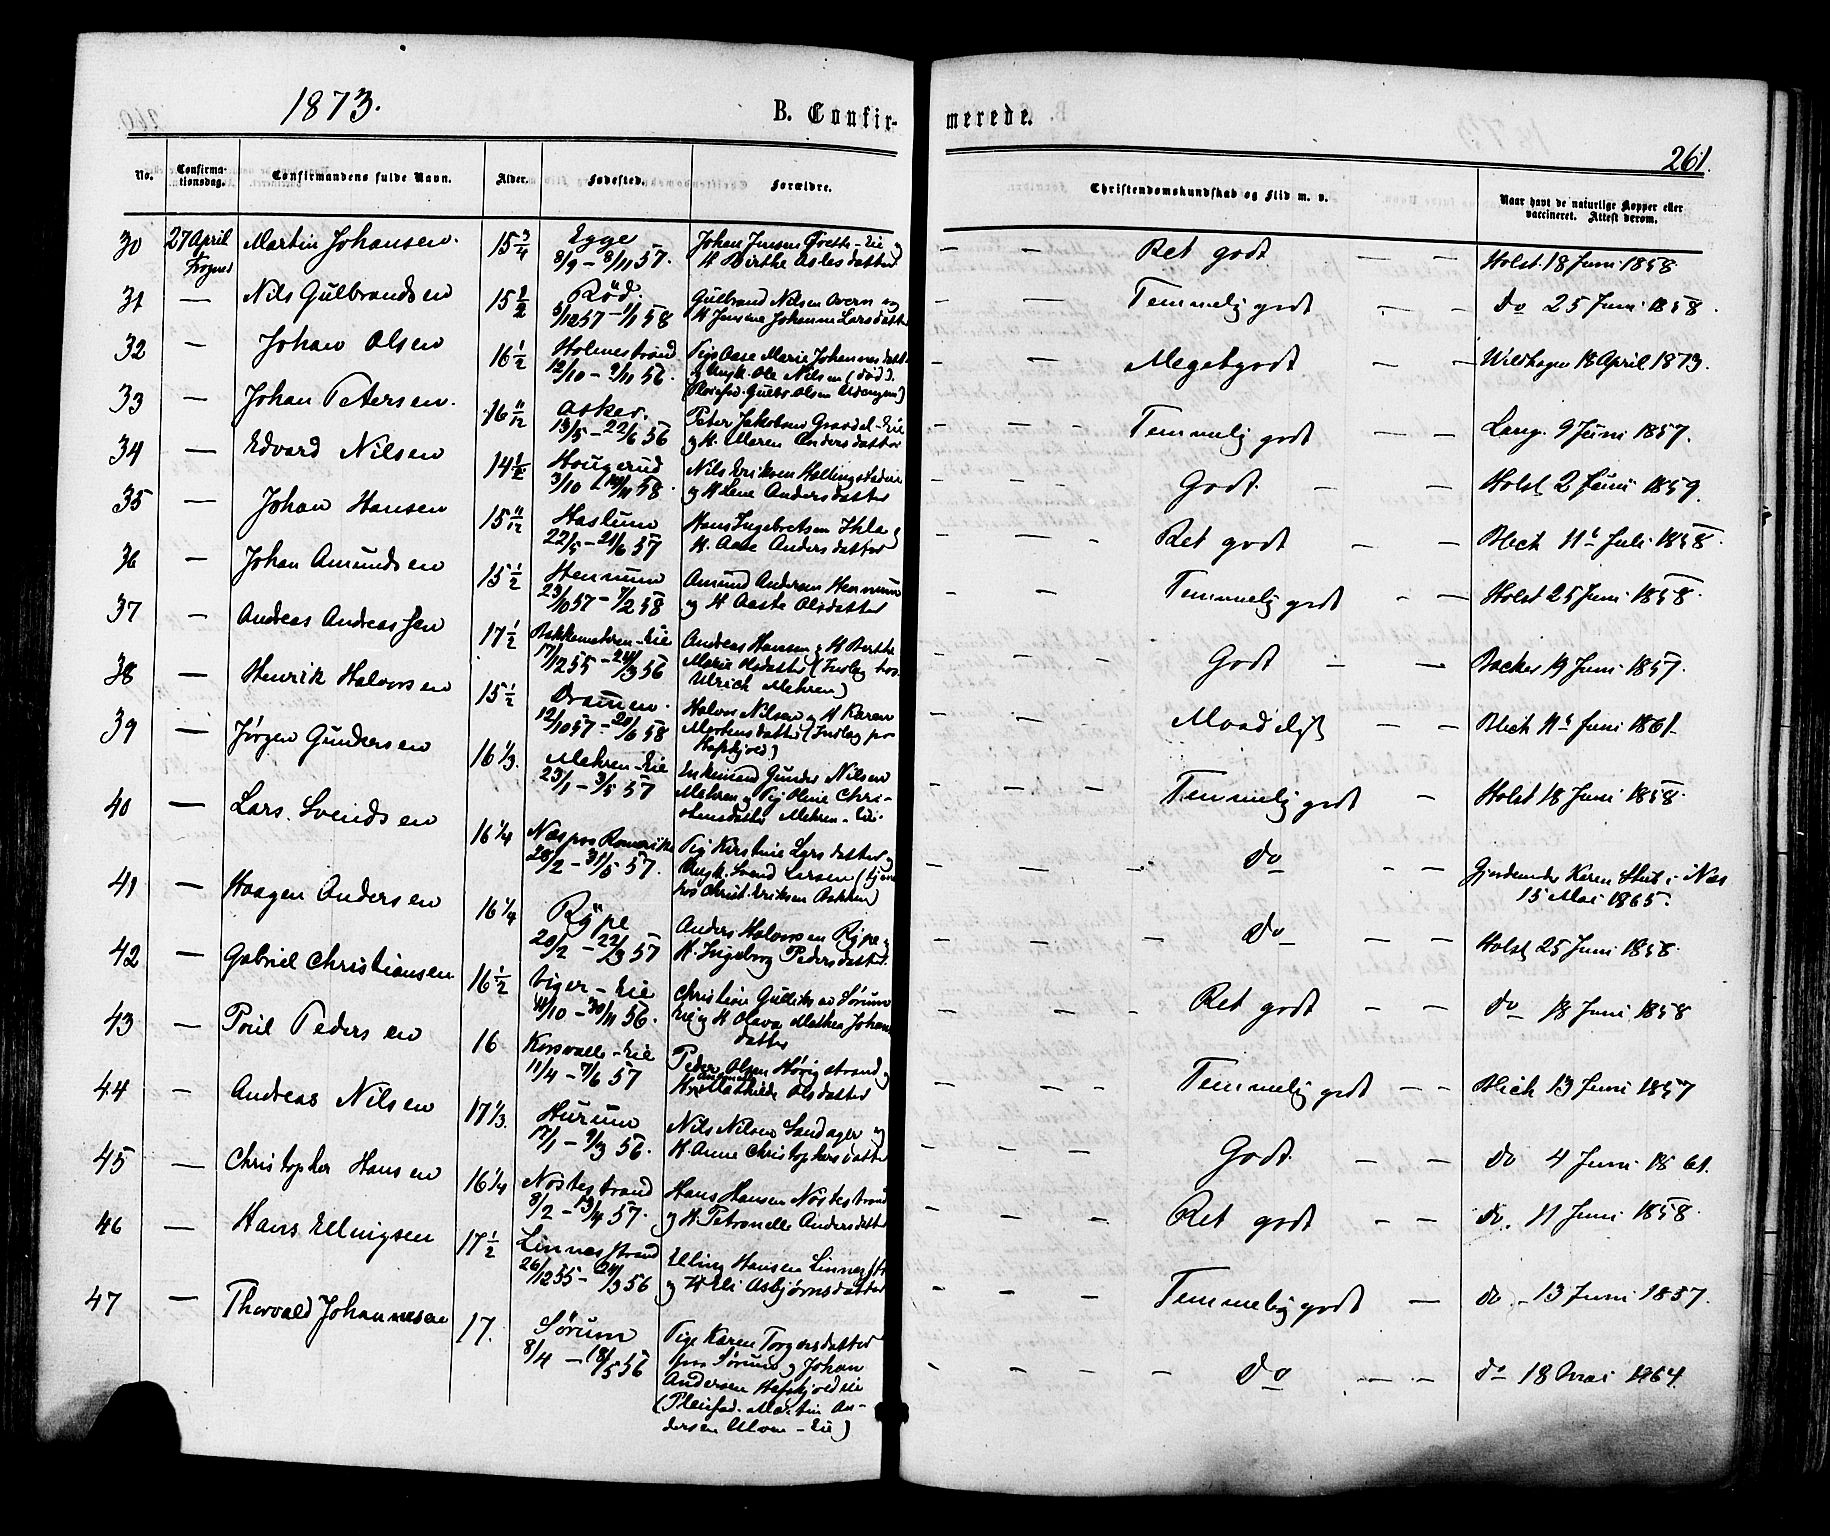 1873.
B. Confirmerede.
261.
No. Confirmationsdag. Confirmandens fulde Navn. Alder. Fødested. Forældre. Christendomskundskab og Flid m. v. Naar havt de naturlige Kopper eller vaccineret. Attest derom.
30 27 April Frogner Martin Johansen. 15 3/4 Egge 8/9 – 8/11 57. Johan Jensen Eie og H Birthe Aslesdatter – – Ret godt – – Holst 18 Juni 1858
31 — Nils Gulbrandsen 15 1/2 Rød. 3/12 57 – 1/1 58 Gulbrand Nilsen Overn og H Jensine Johanne Larsdatter – – Temmelig godt – – Do 25 Juni 1858.
32 — Johan Olsen 16 1/2 Holmestrand 12/10 – 9/11 56. Pige Aase Marie Johannesdatt og Ungk. Ole Nilsen (død). (Pleiefad. Gulbr Olsen) – – Megetgodt – – Wildhagen 18 April 1873.
33 — Johan Petersen. 16 11/12 Asker. 13/5 – 22/6 56 Peter Jakobsen Eie og H. Maren Andersdatter – – Temmelig godt – – Lang. 9 Juni 1857.
34 — Edvard Nilsen 14 1/2 Hougerud 3/10 – 14/11 58. Nils Eriksen og H Lene Andersdatter – – Godt. – – Holst 2 Juni 1859.
35 — Johan Hansen 15 11/12 Haslum 22/5 – 21/6 57 Hans Ingebretsen og H. Aase Andersdatter – – – Ret godt – – Blech 11te Juli 1858.
36 — Johan Amundsen 15 1/2 Hennum 23/10 57 – 7/2 58 Amund Andersen Hennum og H Aaste Olsdatter – – Temmelig godt – – Holst 25 Juni 1858.
37 — Andreas Andreassen 17 1/2 17/12 55 – 24/3 56 Andreas Hansen og H Berthe Marie Olsdatter (Indlag hos Ulrich Mehren) – – Godt – – Backer 19 Juni 1857.
38 — Henrik Halvorsen 15 1/2 Dramen. 12/10 57 – 20/6 58 Halvor Nilsen og H Karen Mortensdatter (Indlag pr Hefskjold) – – Maadeligt – – Blech 11te Juni 1861.
39 — Jørgen Gundersen 16 1/3. Mehren-Eie 23/1 – 3/5 57 Enkemand Gunder Nilsen Mehren og Pig Oline Christensdatter Mehren-Eie. – – Temmelig godt – Holst 18 Juni 1858.
40 — Lars. Svendsen 16 1/4 Næs paa Romerike 28/2 – 31/5 57. Pig Kirstine Larsdatter og Ungk. Svend Larsen (tjene hos Christ. Eriksen Askken) – – – Do – – Gjordemder Karen Stub i Næs 15 Mai 1865.
41 — Haagen Andersen 16 1/4 Rype 20/2 – 22/3 57 Anders Halvorsen Rype og H. Ingeborg Pedersdatter. – – – Do – – Holst 25 Juni 1858.
42 — Gabriel Christiansen 16 1/2 Viger-Eie 11/10 – 30/11 56. Christian Gulliksen Sørum Eie og H Olava Mathea Johansdatter – – – Ret godt – – Do 18 Juni 1858
43 — Poul Pedersen 16 Korsvalls-Eie 11/4 – 7/6 57 Peder Olsen Hørigstrand og Mathilde Olsdatter – – – Temmelig godt – Blech 13 Juni 1857
44 — Andreas Nilsen 17 1/3. Hurum 17/1 – 9/3 56. Nils Nilsen Sandager og H. Anne Christophersdatter – – – Godt. – – Do 4 Juni 1861.
45 — Christopher Hansen 16 1/4 Nøstestrand 8/2 – 13/4 57. Hans Hansen Nøstestrand og H. Petronelle Andersdatter – – – Ret godt – – Do. 11 Juni 1858.
46 — Hans Ellingsen 17 1/2 Linnesstrand 26/12 55 – 24/3 56 Elling Hansen Linnesstr og H Eli Asbjørnsdatter – – – Temmelig godt – Do – 13 Juni 1857.
47 — Thorvald Johannesen 17. Sørum 8/4 – 18/5 56 Pige Karen Torgersdatter paa Sørum og Johan Andersen Hefskjoldeie (Pleiefad. Martin Andersen Ulven-Eie) – – – – Do – – Do 18 Mai 1864.